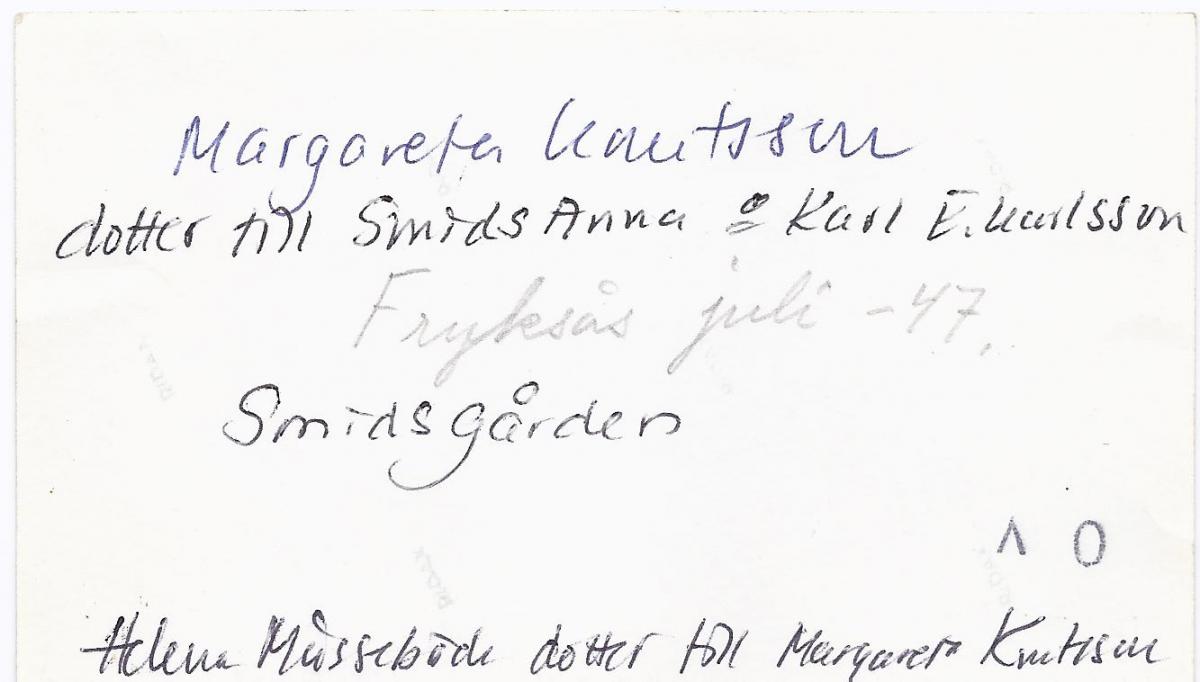 Margareta Knutsson
dotter till Smids Anna o Karl E. Karlsson
Fryksås juli -47.
Smidsgården
Λ 0
Helena dotter till Margareta Knutsson